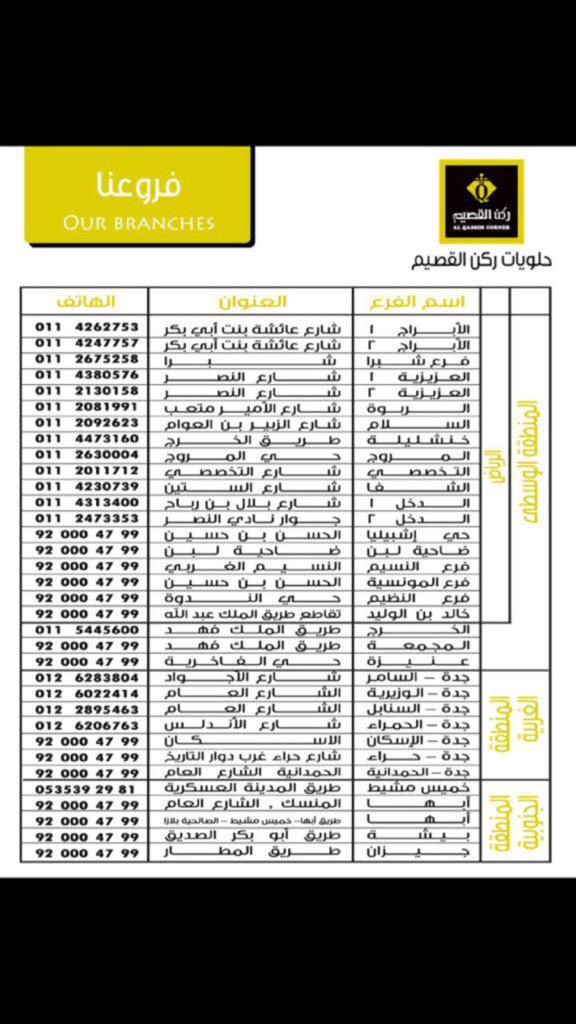 فروعنا
OUR BRANCHES
ركن القصيم
AL QASSIM CORNER
حلويات ركن القصيم
اسم الفرع العنوان الهاتف
المنطقة الوسطى
الرياض
الأبراج ١ شارع عائشة بنت أبي بكر 011 4262753
الأبراج ٢ شارع عائشة بنت أبي بكر 011 4247757
فرع شبرا شبرا 011 2675258
العزيزية ١ شارع النصر 011 4380576
العزيزية ٢ شارع النصر 011 2130158
الربوة شارع الأمير متعب 011 2081991
السلام شارع الزبير بن العوام 011 2092623
خنشليلة طريق الخرج 011 4473160
المروج حي المروج 011 2630004
التخصصي شارع التخصصي 011 2011712
الشفا شارع الستين 011 4230739
الدخل ١ شارع بلال بن رباح 011 4313400
الدخل ٢ جوار نادي النصر 011 2473353
حي إشبيليا الحسن بن حسين 92 000 47 99
ضاحية لبن ضاحية لبن 92 000 47 99
فرع النسيم النسيم الغربي 92 000 47 99
فرع المونسية الحسن بن حسين 92 000 47 99
فرع النظيم حي الندوة 92 000 47 99
خالد بن الوليد تقاطع طريق الملك عبد الله 92 000 47 99
الخرج طريق الملك فهد 011 5445600
المجمعة طريق الملك فهد 92 000 47 99
عنيزة حي الفاخرية 92 000 47 99
المنطقة الغربية
جدة – السامر شارع الأجواد 012 6283804
جدة – الوزيرية الشارع العام 012 6022414
جدة – السنابل الشارع العام 012 2895463
جدة – الحمراء شارع الأندلس 012 6206763
جدة – الإسكان الاسكان 92 000 47 99
جدة – حراء شارع حراء غرب دوار التاريخ 92 000 47 99
جدة – الحمدانية الحمدانية الشارع العام 92 000 47 99
المنطقة الجنوبية
خميس مشيط طريق المدينة العسكرية 053539 29 81
أبها المنسك , الشارع العام 92 000 47 99
أبها طريق أبها– خميس مشيط – الصالحية بلازا 92 000 47 99
بيشة طريق أبو بكر الصديق 92 000 47 99
جيزان طريق المطار 92 000 47 99